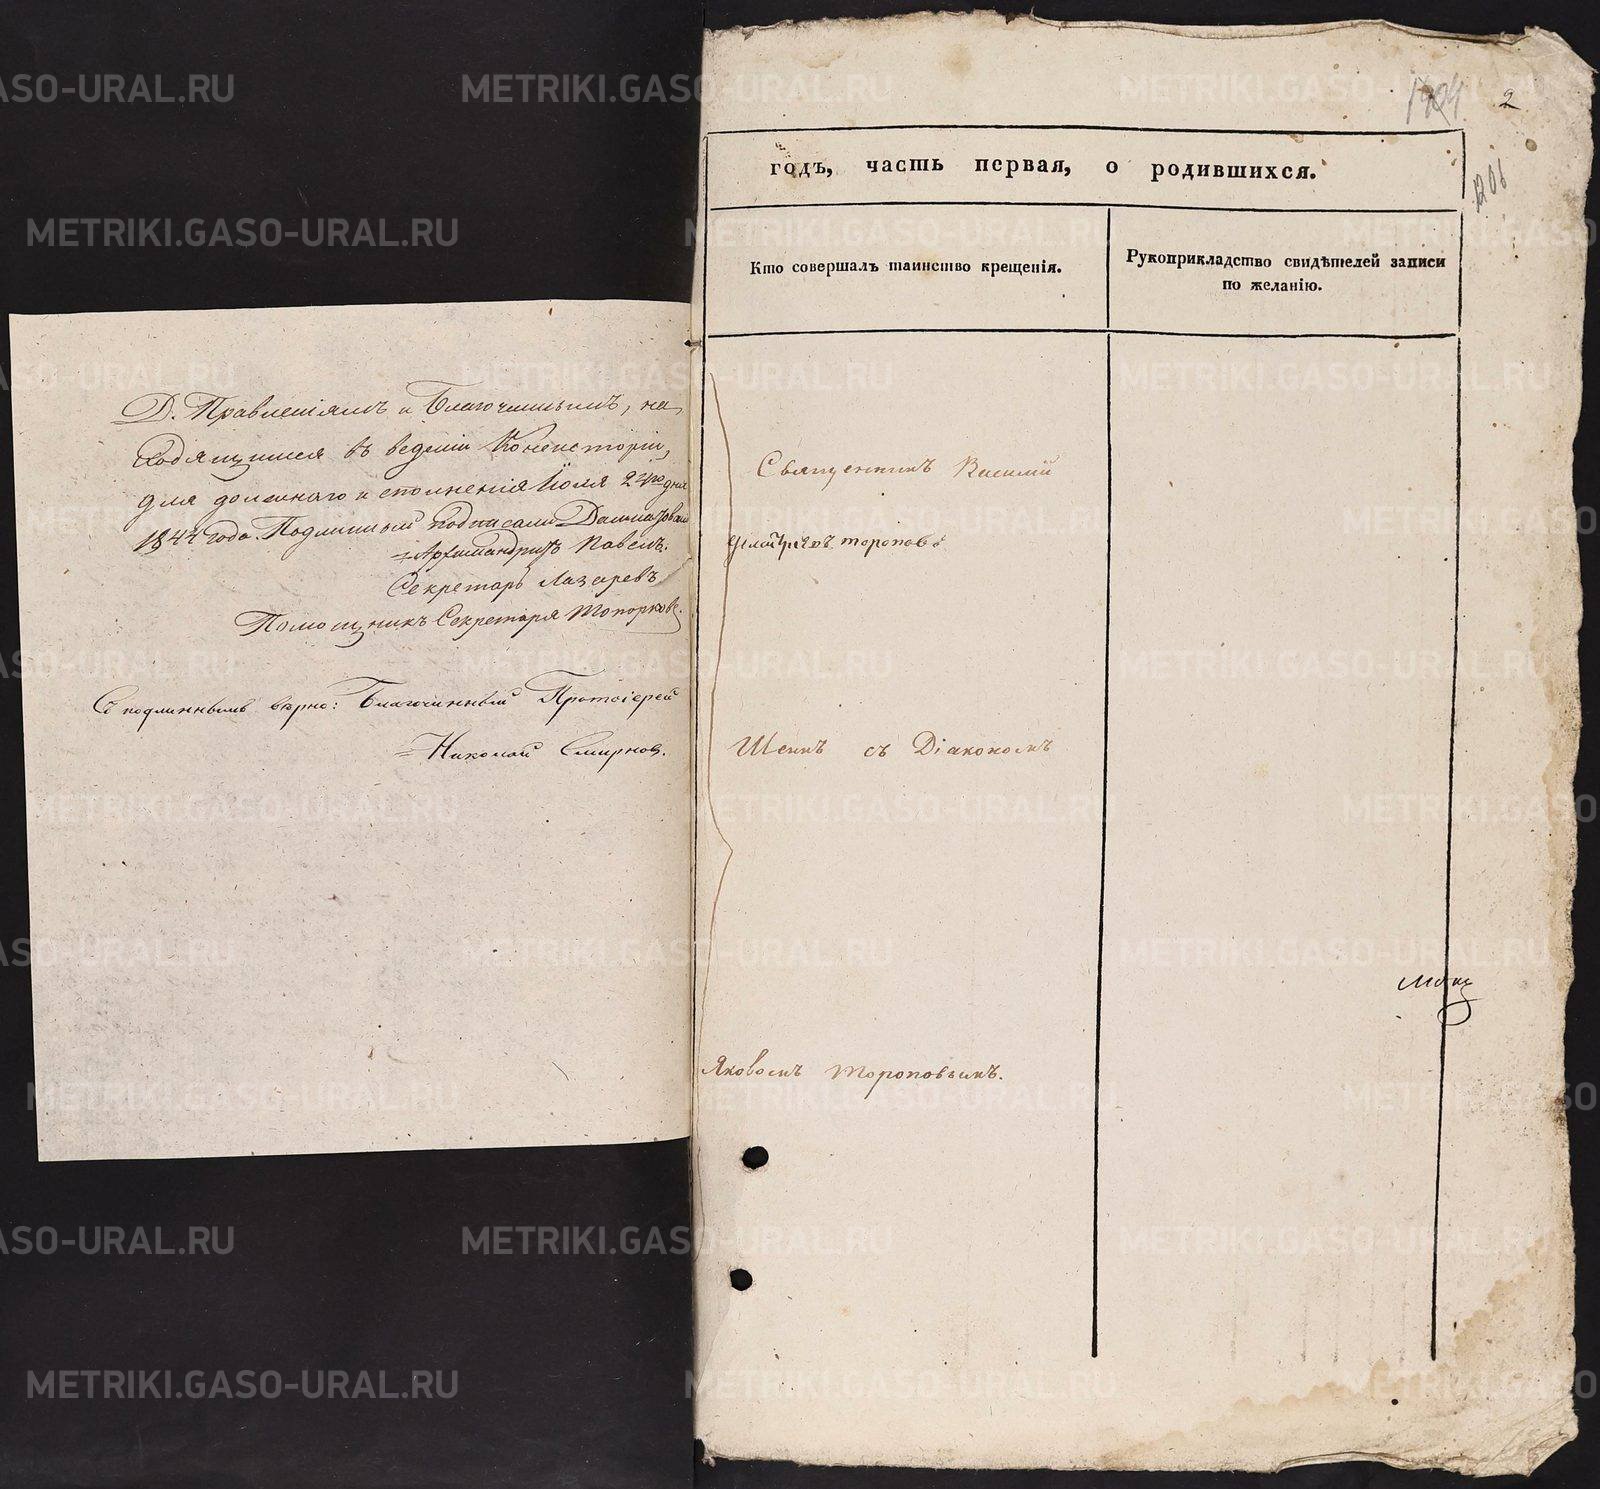 Д. Правленіямъ и Благочиннымъ, на,
ходящимся въ веденіи Консисторіи,
для должнаго исполненія Іюля 24го дня
1844 года. Подлинный подписали Далматовскій
Архимандритъ Павелъ.
Секретарь Лазаревъ
Помощникъ Секретаря Топорковъ.
Съ подлиннымъ верно: Благочинный Протоіерей
Николай Смирновъ.
2
годъ, часть первая, о родившихся.
1206
Кто совершалъ таинство крещенія.
Рукоприкладство свидѣтелей записи
по желанію.
Священникъ Василій
Топоповъ
съ Діакономъ
Яковомъ Тороповымъ.
METRIKI.GASO-URAL.RU